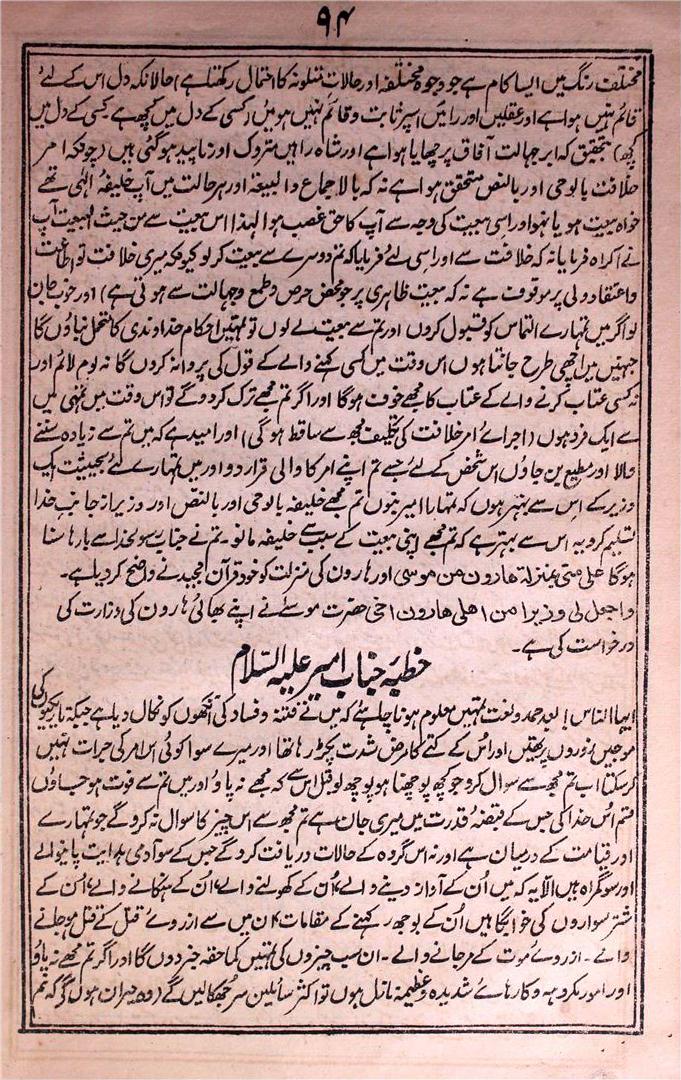 ۹۴
مختلف رنگ میں ایسا کام ہے جو وجوہ مختلفہ اور حالات متلونہ کا احتمال رکھتا ہے) حالانکہ دل اس کے لئے
قائم نہیں ہوا ہے اور عقلیں اور رائیں اسپر ثابت و قائم نہیں ہوئیں (کسی کے دل میں کچھ ہے کسی کے دل میں
کچھ) تحقیق کہ ابر جہالت آفاق پر چھایا ہوا ہے اور شاہ راہیں متروک اور ناپید ہوگئی ہیں (چونکہ امر
خلافت بالوحی اور بالنص متحقق ہوا ہے نہ کہ بالاجماع والبیعۃ اور ہر حالت میں آپ خلیفہ الٰہی تھے
خواہ بیعت ہو یا نہو اور اسی بیعت کی وجہ سے آپ کا حق غصب ہوا لہذا اس بیعت سے من حیث البیعت آپ
نے اکراہ فرمایا نہ کہ خلافت سے اور اسی لئے فرمایا کہ تم دوسرے سے بیعت کر لو کیونکہ میری خلافت تو اطاعت
واعتقاد ولی پر موقوف ہے نہ کہ بیعت ظاہری پر جو محض حرص و طمع و جہالت سے ہوتی ہے) اور خوب جان
لو اگر میں تمہارے التماس کو قبول کروں اور تم سے بیعت لے لوں تو تمہیں احکام خداوندی کا متحمل بناؤں گا
جنہیں میں اچھی طرح جانتا ہوں اس وقت میں کسی کہنے والے کے قول کی پروا نہ کروں گا نہ لوم لائم اور
نہ کسی عتاب کرنے والے کے عتاب کا مجھے خوف ہوگا اور اگر تم مجھے ترک کردو گے تو اس وقت میں تمہی میں
سے ایک فرد ہوں (اجرائے امر خلافت کی تکلیف مجھ سے ساقط ہوگی) اور امید ہے کہ میں تم سے زیادہ سننے
والا اور مطیع بن جاؤں اس شخص کے لئے جسے تم اپنے امر کا والی قرار دو اور میں تمہارے لئے بحیثیت ایک
وزیر کے اس سے بہتر ہوں کہ تمہارا امیر بنوں تم مجھے خلیفہ بالوحی اور بالنص اور وزیر از جانب خدا
تسلیم کرو یہ اس سے بہتر ہے کہ تم مجھے اپنی بیعت کے سبب سے خلیفہ مانو۔ تم نے جناب رسولخدا سے بارہا سنا
ہوگا علی منی بمنزلۃ ھارون من موسیٰ اور ہارون کی منزلت کو خود قرآن مجید نے واضح کر دیا ہے۔
واجعل لی وزیرا من اھلی ھارون اخی حضرت موسےٰ نے اپنے بھائی ہارون کی وزارت کی
درخواست کی ہے۔
خطبہ جناب امیر علیہ السلام
ایہا الناس! بعد حمد و نعت تمہیں معلوم ہونا چاہئے کہ میں نے فتنہ و فساد کی آنکھوں کو نکال دیا ہے جبکہ تاریکیوں کی
موجیں زوروں پر تھیں اور اس کے کتے کا مرض شدت پکڑ رہا تھا اور میرے سوا کوئی اس امر کی جرات نہیں
کر سکتا اب تم مجھ سے سوال کرو جو کچھ پوچھنا ہو پوچھ لو قبل اس کے کہ مجھے نہ پاؤ اور میں تم سے فوت ہو جاؤں
قسم اس خدا کی جس کے قبضۂ قدرت میں میری جان ہے تم مجھ سے اس چیز کا سوال نہ کرو گے جو تمہارے
اور قیامت کے درمیان ہے اور نہ اس گروہ کے حالات دریافت کرو گے جس کے سو آدمی ہدایت پانیوالے
اور سو گمراہ ہیں الا یہ کہ میں اُن کے آواز دینے والے اُن کے کھولنے والے اُن کے ہنکانے والے اُن کے
شتر سواروں کی خوابگاہیں اُن کے بوجھ رکھنے کے مقامات ان میں سے ازروئے قتل کے قتل ہو جانے
والے۔ ازروئے موت کے مر جانے والے۔ ان سب چیزوں کی تمہیں کما حقہ خبر دوں گا اور اگر تم مجھے نہ پاؤ
اور امور مکروہہ و کارہائے شدیدہ و عظیمہ نازل ہوں تو اکثر سائلین سر جھکالیں گے (وہ حیران ہوں گے کہ تم